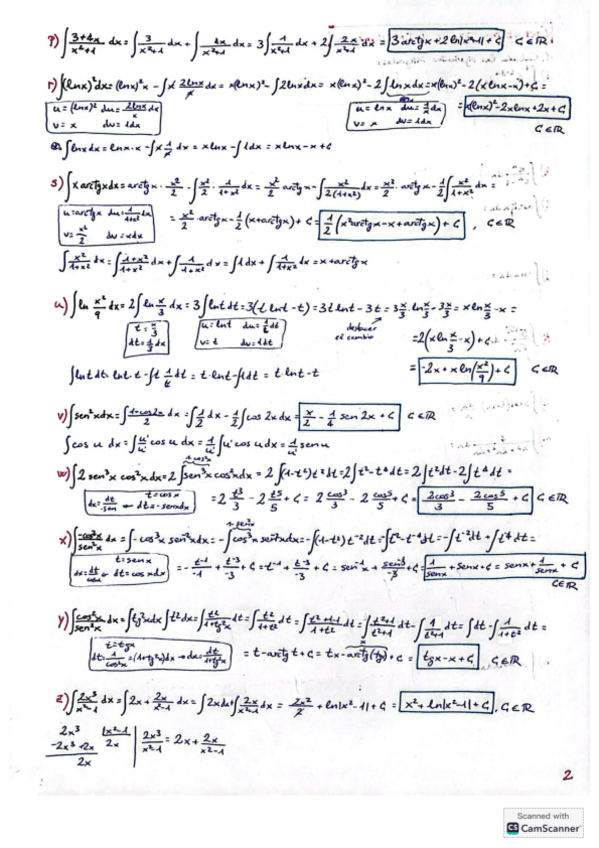 p) ∫ (3+4x)/(x²+1) dx = ∫ 3/(x²+1) dx + ∫ 4x/(x²+1) dx = 3∫ 1/(x²+1) dx + 2∫ 2x/(x²+1) dx = 3 arctgx + 2 ln|x²+1| + C C ∈ ℝ
r) ∫(lnx)² dx = (lnx)² x - ∫ x 2lnx/x dx = x(lnx)² - ∫2lnx dx = x(lnx)² - 2∫lnx dx = x(lnx)² - 2(x lnx - x) + C =
u = (lnx)² du = 2lnx/x dx
v = x dv = 1dx
u = lnx du = 1/x dx
v = x dv = 1dx
= x(lnx)² - 2x lnx + 2x + C
C ∈ ℝ
∫lnx dx = lnx · x - ∫ x 1/x dx = x lnx - ∫1dx = x lnx - x + C
s) ∫ x arctgx dx = arctgx · x²/2 - ∫ x²/2 · 1/(1+x²) dx = x²/2 arctgx - ∫ x²/(2(1+x²)) dx = x²/2 · arctgx - 1/2 ∫ x²/(1+x²) dx =
u = arctgx du = 1/(1+x²) dx
v = x²/2 dv = x dx
= x²/2 · arctgx - 1/2 (x + arctgx) + C = 1/2 (x² arctgx - x + arctgx) + C , C ∈ ℝ
∫ x²/(1+x²) dx = ∫ (1+x²)/(1+x²) dx + ∫ 1/(1+x²) dx = ∫1dx + ∫ 1/(1+x²) dx = x + arctgx
u) ∫ ln x²/9 dx = 2∫ ln x/3 dx = 3∫ lnt dt = 3(t lnt - t) = 3t lnt - 3t = 3 x/3 · ln x/3 - 3x/3 = x ln x/3 - x =
t = x/3
dt = 1/3 dx
u = lnt du = 1/t dt
v = t dv = 1dt
deshacer
el cambio
= 2(x ln x/3 - x) + C
∫lnt dt = lnt · t - ∫t 1/t dt = t · lnt - ∫1dt = t · lnt - t
= -2x + x ln(x²/9) + C C ∈ ℝ
v) ∫sen²x dx = ∫ (1-cos2x)/2 dx = ∫ 1/2 dx - 1/2 ∫ cos 2x dx = x/2 - 1/4 sen 2x + C C ∈ ℝ
∫cos u dx = ∫ u'/u' cos u dx = 1/u' ∫ u' cos u dx = 1/u' sen u
1-cos²x
w) ∫2 sen³x cos²x dx = 2∫sen³x cos²x dx = 2∫(1-t²) t² dt = 2∫t² - t⁴ dt = 2∫t² dt - 2∫t⁴ dt =
t = cosx
dx = dt/-sen ← dt = -senx dx
= 2 t³/3 - 2 t⁵/5 + C = 2 cos³/3 - 2 cos⁵/5 + C = 2cos³/3 - 2cos⁵/5 + C C ∈ ℝ
x) ∫ -cos³x/sen²x dx = ∫-cos³x sen⁻²x dx = -∫cos³x sen⁻²x dx = -∫(1-t²) t⁻² dt = -∫t⁻² - t⁻⁴ dt = -∫t⁻² dt + ∫t⁻⁴ dt =
t = senx
dx = dt/cosx ← dt = cosx dx
= - t⁻¹/-1 + t⁻³/-3 + C = t⁻¹ + t⁻³/-3 + C = sen⁻¹x + sen⁻³/-3 + C = 1/senx + senx + C = senx + 1/senx + C
C ∈ ℝ
y) ∫ cos²x/sen²x dx = ∫tg²x dx ∫t² dx = ∫ t²/(1+tg²x) dt = ∫ t²/(1+t²) dt = ∫ (t²+1-1)/(1+t²) dt = ∫ (t²+1)/(t²+1) dt - ∫ 1/(t²+1) dt = ∫dt - ∫ 1/(1+t²) dt =
t = tgx
dt = 1/cos²x = (1+tg²x)dx → dx = dt/(1+tg²x)
= t - arctg t + C = tx - arctg(tg)x + C = tgx - x + C C ∈ ℝ
z) ∫ 2x³/(x²-1) dx = ∫ 2x + 2x/(x²-1) dx = ∫2x dx + ∫ 2x/(x²-1) dx = 2x²/2 + ln|x²-1| + C = x² + ln|x²-1| + C , C ∈ ℝ
2x³ |x²-1
-2x³ +2x 2x
2x
2x³/(x²-1) = 2x + 2x/(x²-1)
2
Scanned with
CS CamScanner